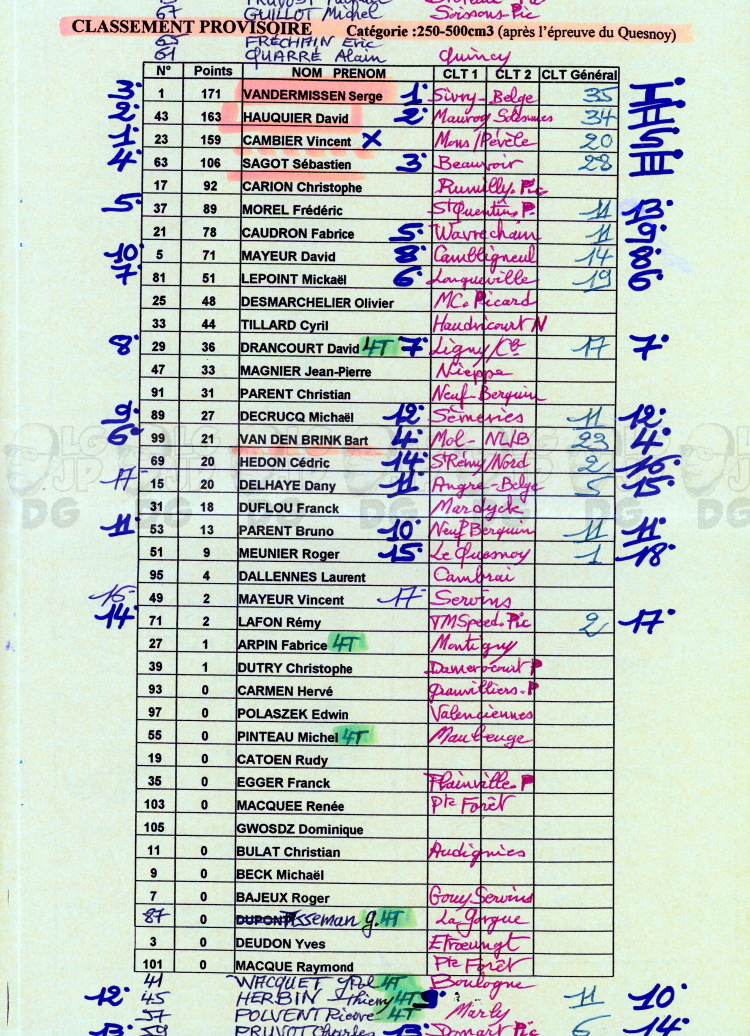 67 GUILLOT Michel Soissons-Pic
CLASSEMENT PROVISOIRE Catégorie :250-500cm3 (après l'épreuve du Quesnoy)
65 FRÉCHAIN Eric
61 QUARRÉ Alain Quincy
N° Points NOM PRENOM CLT 1 CLT 2 CLT Général
3° 1 171 VANDERMISSEN Serge 1° Sivry-Belge 35 I
2° 43 163 HAUQUIER David 2° Mauroy Solesmes 34 II
1° 23 159 CAMBIER Vincent X Mons/Pévèle 20 5
4° 63 106 SAGOT Sébastien 3° Beauvoir 28 III
17 92 CARION Christophe Rumilly. Pic
5° 37 89 MOREL Frédéric St Quentin P. 11 13°
21 78 CAUDRON Fabrice 5° Wavrechain 11 9°
10° 5 71 MAYEUR David 8° Cambligneul 14 8°
7° 81 51 LEPOINT Mickaël 6° Longueville 19 6
25 48 DESMARCHELIER Olivier MC. Picard
33 44 TILLARD Cyril Haudricourt N
8° 29 36 DRANCOURT David 4T 7° Ligny/Cis 17 7°
47 33 MAGNIER Jean-Pierre Nieppe
91 31 PARENT Christian Neuf-Berquin
9° 89 27 DECRUCQ Michaël 12° Séméries 11 12°
6° 99 21 VAN DEN BRINK Bart 4° Mol-NL/B 23 4°
69 20 HEDON Cédric 14° St Rémy/Nord 2 16°
17° 15 20 DELHAYE Dany 11° Angre-Belge 5 15°
31 18 DUFLOU Franck Mardyck
11° 53 13 PARENT Bruno 10° Neuf Berquin 11 11°
51 9 MEUNIER Roger 15° Le Quesnoy 1 18°
95 4 DALLENNES Laurent Cambrai
16° 49 2 MAYEUR Vincent 17° Servins
14° 71 2 LAFON Rémy TMSpeed. Pic 2 17°
27 1 ARPIN Fabrice 4T Montigny
39 1 DUTRY Christophe Damerocourt P
93 0 CARMEN Hervé Granvilliers. P
97 0 POLASZEK Edwin Valenciennes
55 0 PINTEAU Michel 4T Maubeuge
19 0 CATOEN Rudy
35 0 EGGER Franck Plainville. P
103 0 MACQUEE Renée Pte Forêt
105 GWOSDZ Dominique
11 0 BULAT Christian Audignies
9 0 BECK Michaël
7 0 BAJEUX Roger Gouy Servins
87 0 DUPONT Tsseman g. 4T La Gorgue
3 0 DEUDON Yves Etroeungt
101 0 MACQUE Raymond Pte Forêt
41 WACQUET Pol 4T Boulogne
12° 45 HERBIN Thierry 4T 9° 11 10°
57 POLVENT Pierre 4T Marly
13° 59 PRUVOT Charles 13° Domart Pic 6 14°